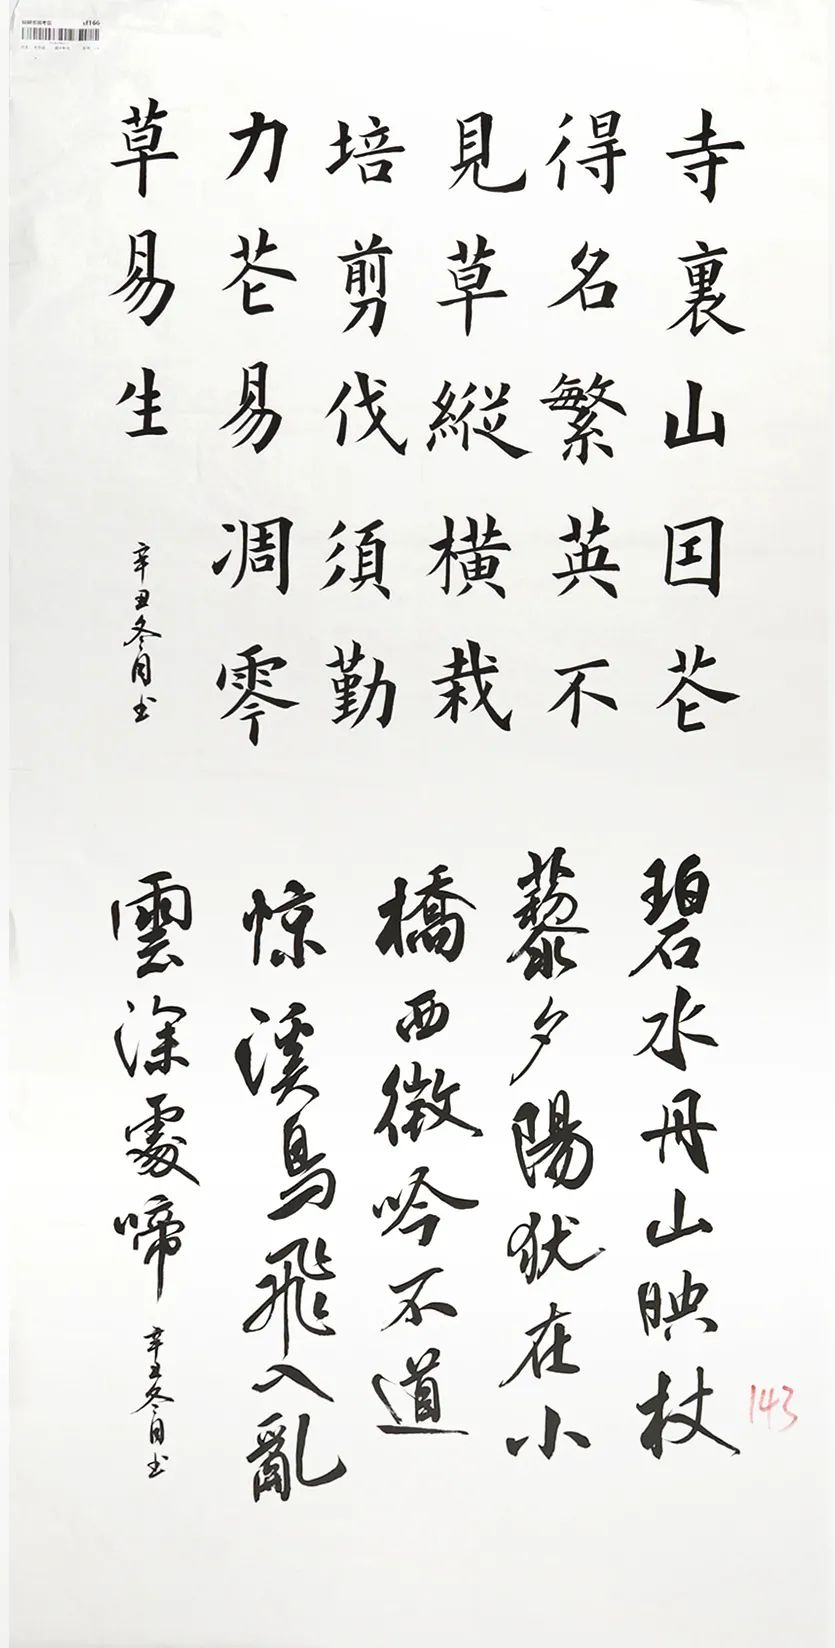 寺裏山因芲
得名繁英不
見草縱橫栽
培剪伐須勤
力芲易凋零
草易生
辛丑冬月书
碧水丹山映杖
藜夕陽犹在小
橋西微吟不道
惊溪鳥飛入亂
雲深處啼
辛丑冬月书
143
sf166